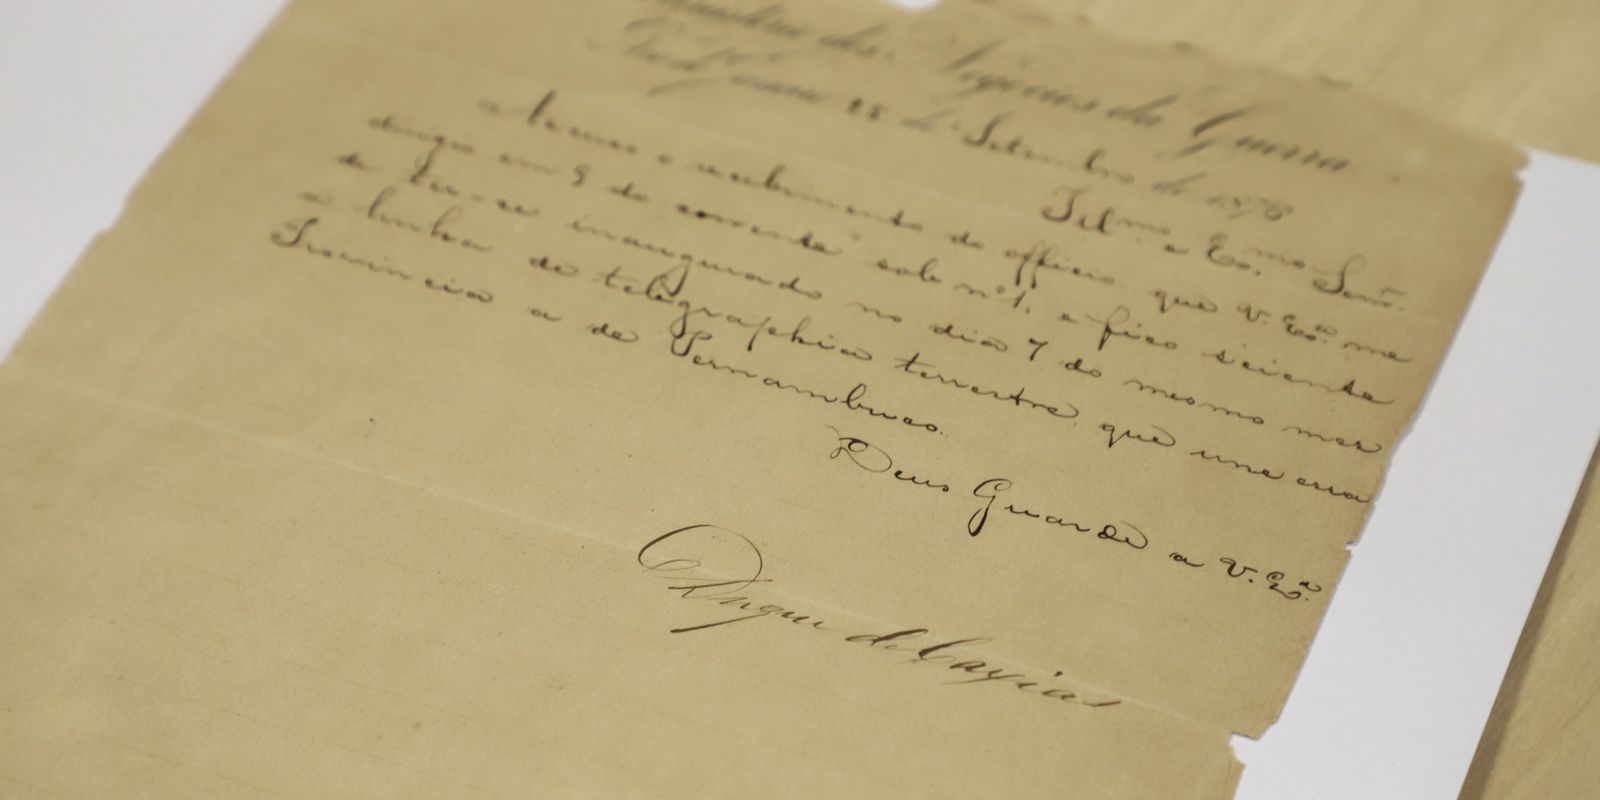 Ministerio dos Negocios da Guerra
Rio de Janeiro 25 de Setembro de 1875
Ill.mo e Ex.mo Senr.
Accuso o recebimento do officio que V. Ex.a me
dirigio em 9 do corrente sob nº 1, e fico sciente
de ter-se inaugurado no dia 7 do mesmo mez
a linha de telegraphia terrestre, que une essa
Provincia a de Pernambuco.
Deus Guarde a V. Ex.a
Duque de Caxias